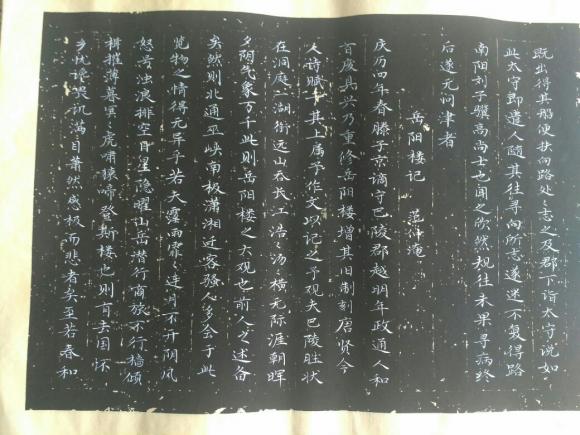 既出得其船便扶向路处々志之及郡下诣太守说如
此太守即遣人随其往寻向所志遂迷不复得路
南阳刘子骥高尚士也闻之欣然规往未果寻病终
后遂无问津者
岳阳楼记 范仲淹
庆历四年春滕子京谪守巴陵郡越明年政通人和
百废具兴乃重修岳阳楼增其旧制刻唐贤今
人诗赋于其上属予作文以记之予观夫巴陵胜状
在洞庭一湖衔远山吞长江浩々汤々横无际涯朝晖
夕阴气象万千此则岳阳楼之大观也前人之述备
矣然则北通巫峡南极潇湘迁客骚人多会于此
览物之情得无异乎若夫霪雨霏々连月不开阴风
怒号浊浪排空日星隐曜山岳潜行商旅不行樯倾
楫摧薄暮冥々虎啸猿啼登斯楼也则有去国怀
乡忧谗畏讥满目萧然感极而悲者矣至若春和